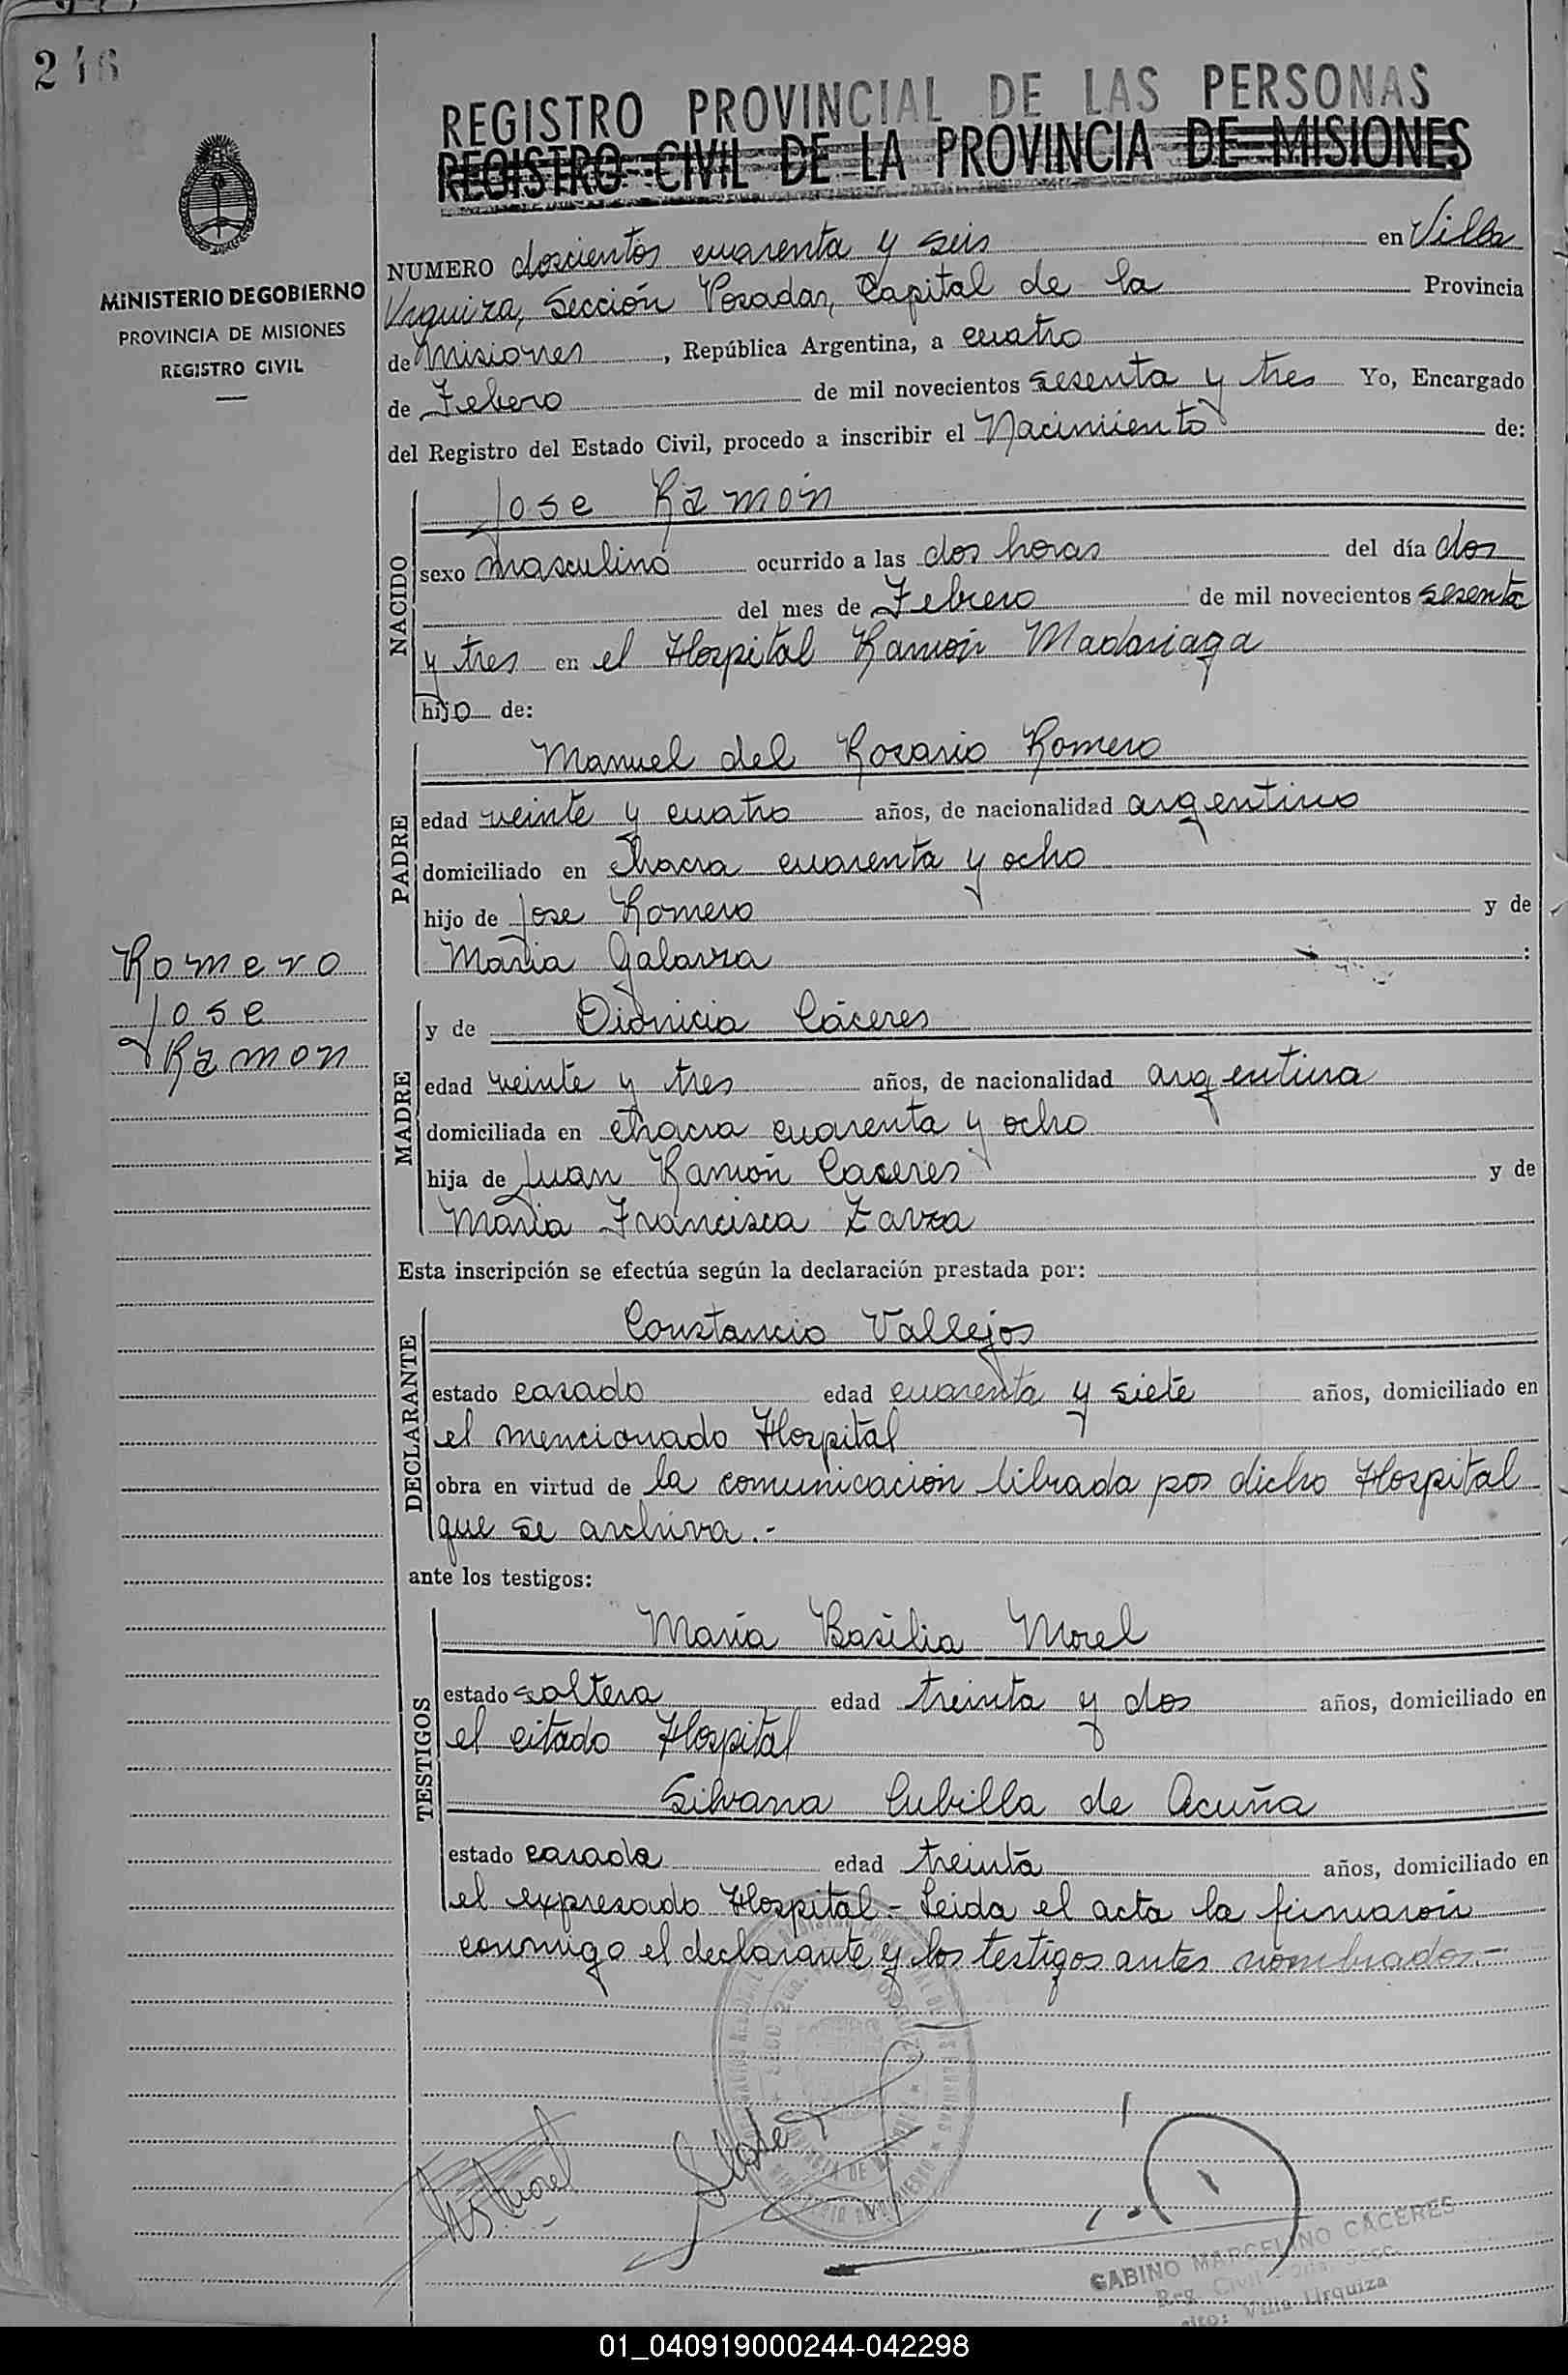 246
REGISTRO PROVINCIAL DE LAS PERSONAS
REGISTRO CIVIL DE LA PROVINCIA DE MISIONES
MINISTERIO DE GOBIERNO
PROVINCIA DE MISIONES
REGISTRO CIVIL
NUMERO doscientos cuarenta y seis en Villa
Urquiza, Sección Posadas, Capital de la Provincia
de Misiones, República Argentina, a cuatro
de Febero de mil novecientos sesenta y tres Yo, Encargado
del Registro del Estado Civil, procedo a inscribir el Nacimiento de:
NACIDO
Jose Ramón
sexo masculino ocurrido a las dos horas del día dos
del mes de Febrero de mil novecientos sesenta
y tres en el Hospital Ramón Madariaga
hijo de:
PADRE
Manuel del Rosario Romero
edad veinte y cuatro años, de nacionalidad argentino
domiciliado en Chacra cuarenta y ocho
hijo de Jose Romero y de
María Galarza :
Romero
Jose
Ramon
MADRE
y de Dionicia Cáceres
edad veinte y tres años, de nacionalidad argentina
domiciliada en chacra cuarenta y ocho
hija de Juan Ramón Caseres y de
María Francisca Zarza
Esta inscripción se efectúa según la declaración prestada por:
DECLARANTE
Constancio Vallejos
estado casado edad cuarenta y siete años, domiciliado en
el mencionado Hospital
obra en virtud de la comunicación librada por dicho Hospital
que se archiva.-
ante los testigos:
TESTIGOS
María Basilia Morel
estado soltera edad treinta y dos años, domiciliado en
el citado Hospital
Silvana Cubilla de Acuña
estado casada edad treinta años, domiciliado en
el expresado Hospital.- Leida el acta la firmaron
conmigo el declarante y los testigos antes nombrados.-
GABINO MARCELINO CACERES
Reg. Civil
Villa Urquiza
01_040919000244-042298